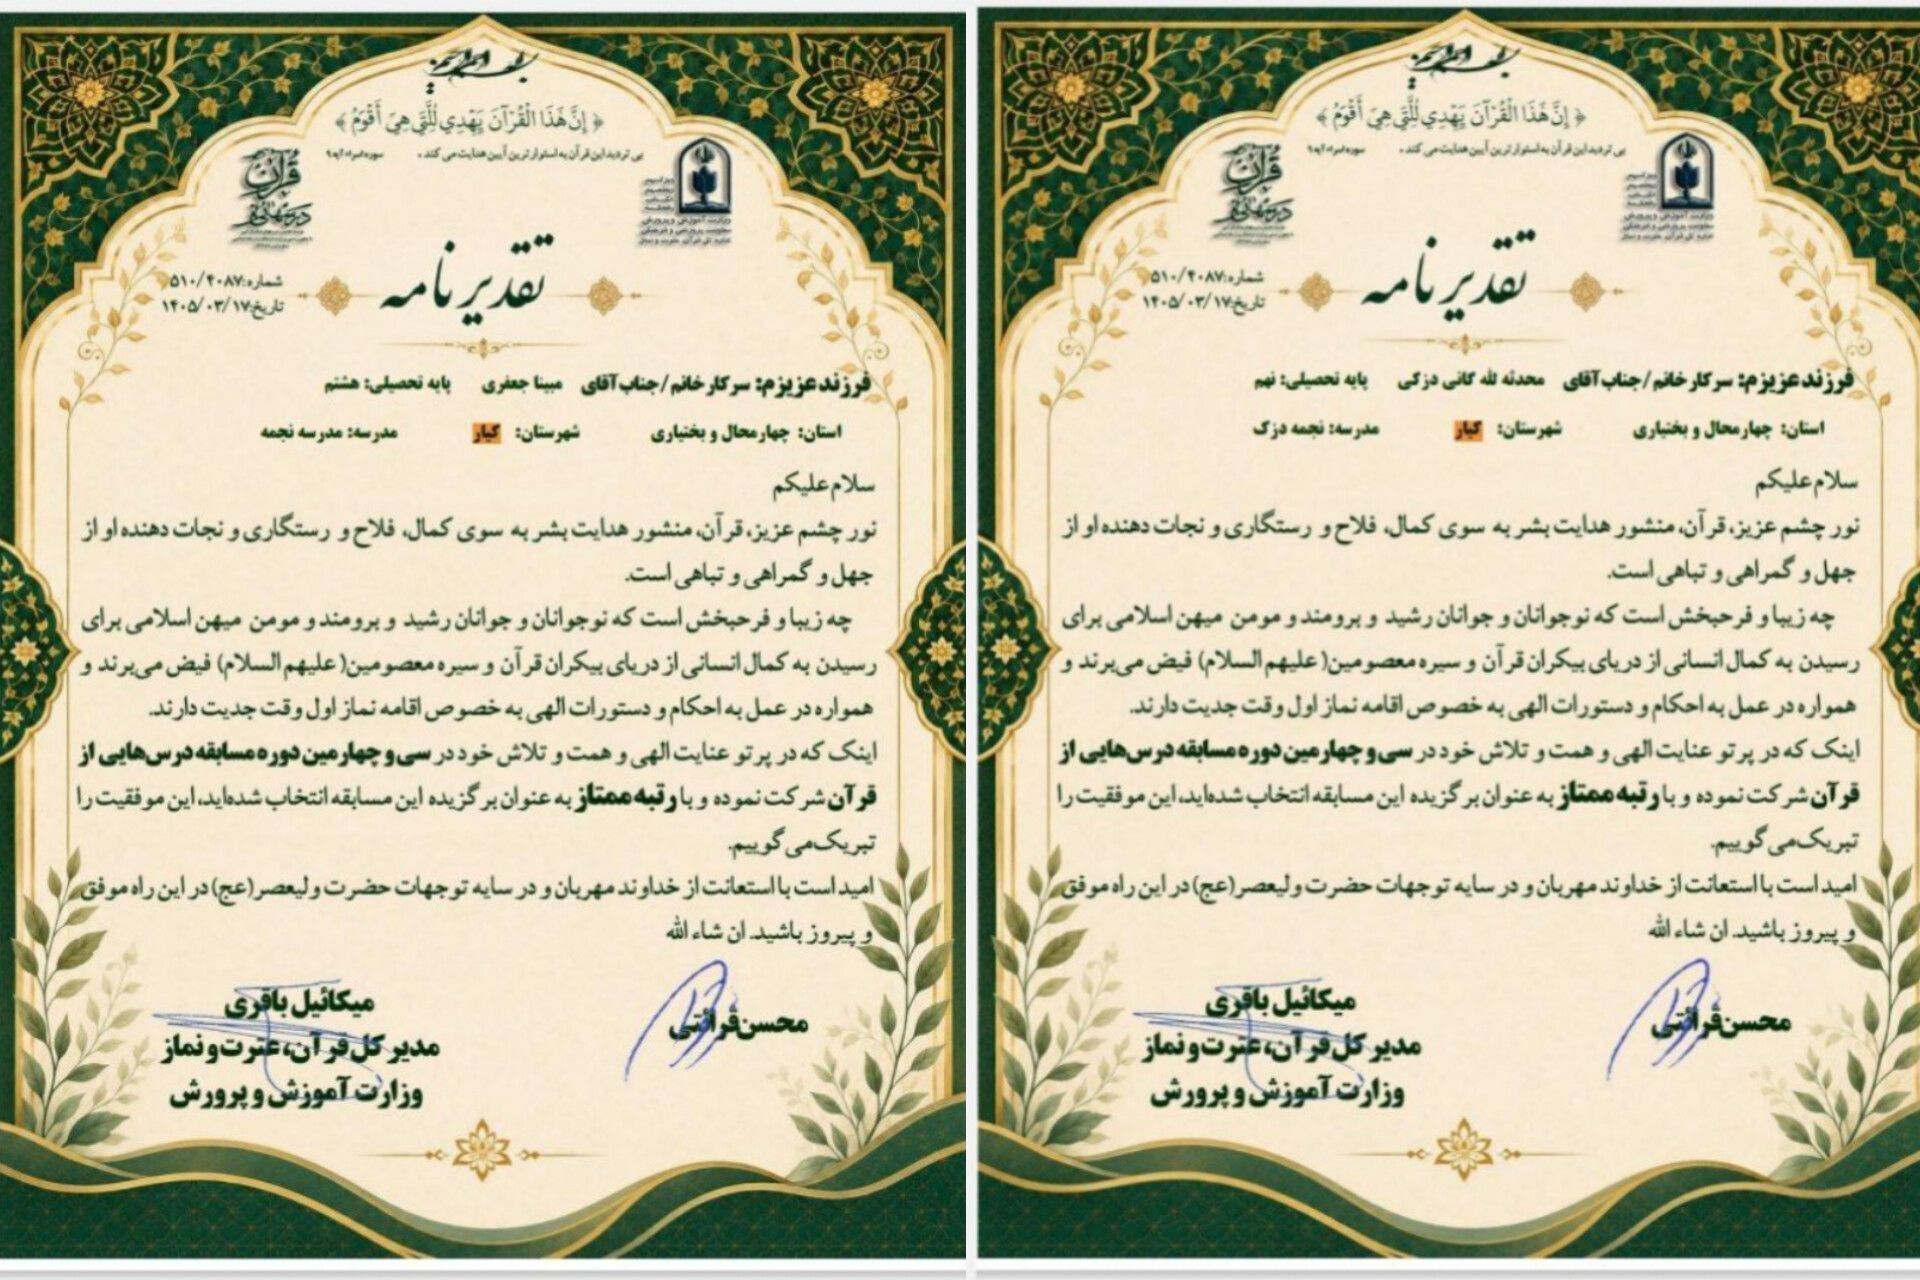 ﴿ إِنَّ هَذَا الْقُرْآنَ يَهْدِي لِلَّتِي هِيَ أَقْوَمُ ﴾
بی تردید این قرآن به استوارترین آیین هدایت می کند . سوره اسراء آیه ۹
قرآن
وزارت آموزش و پرورش
معاونت پرورشی و فرهنگی
اداره کل قرآن، عترت و نماز
تقدیرنامه
شماره:۵۱۰/۴۰۸۷
تاریخ:۱۴۰۵/۰۳/۱۷
فرزند عزیزم: سرکار خانم / جناب آقای مبینا جعفری پایه تحصیلی: هشتم
استان: چهارمحال و بختیاری شهرستان: کیار مدرسه: مدرسه نجمه
سلام علیکم
نور چشم عزیز، قرآن، منشور هدایت بشر به سوی کمال، فلاح و رستگاری و نجات دهنده او از
جهل و گمراهی و تباهی است.
چه زیبا و فرحبخش است که نوجوانان و جوانان رشید و برومند و مومن میهن اسلامی برای
رسیدن به کمال انسانی از دریای بیکران قرآن و سیره معصومین( علیهم السلام) فیض می‌برند و
همواره در عمل به احکام و دستورات الهی به خصوص اقامه نماز اول وقت جدیت دارند.
اینک که در پرتو عنایت الهی و همت و تلاش خود در سی و چهارمین دوره مسابقه درس‌هایی از
قرآن شرکت نموده و با رتبه ممتاز به عنوان برگزیده این مسابقه انتخاب شده‌اید، این موفقیت را
تبریک می گوییم.
امید است با استعانت از خداوند مهربان و در سایه توجهات حضرت ولیعصر(عج) در این راه موفق
و پیروز باشید. ان شاء الله
محسن قرائتی
میکائیل باقری
مدیر کل قرآن، عترت و نماز
وزارت آموزش و پرورش
﴿ إِنَّ هَذَا الْقُرْآنَ يَهْدِي لِلَّتِي هِيَ أَقْوَمُ ﴾
بی تردید این قرآن به استوارترین آیین هدایت می کند . سوره اسراء آیه ۹
قرآن
وزارت آموزش و پرورش
معاونت پرورشی و فرهنگی
اداره کل قرآن، عترت و نماز
تقدیرنامه
شماره:۵۱۰/۴۰۸۷
تاریخ:۱۴۰۵/۰۳/۱۷
فرزند عزیزم: سرکار خانم / جناب آقای محدثه لله گانی دزکی پایه تحصیلی: نهم
استان: چهارمحال و بختیاری شهرستان: کیار مدرسه: نجمه دزک
سلام علیکم
نور چشم عزیز، قرآن، منشور هدایت بشر به سوی کمال، فلاح و رستگاری و نجات دهنده او از
جهل و گمراهی و تباهی است.
چه زیبا و فرحبخش است که نوجوانان و جوانان رشید و برومند و مومن میهن اسلامی برای
رسیدن به کمال انسانی از دریای بیکران قرآن و سیره معصومین( علیهم السلام) فیض می‌برند و
همواره در عمل به احکام و دستورات الهی به خصوص اقامه نماز اول وقت جدیت دارند.
اینک که در پرتو عنایت الهی و همت و تلاش خود در سی و چهارمین دوره مسابقه درس‌هایی از
قرآن شرکت نموده و با رتبه ممتاز به عنوان برگزیده این مسابقه انتخاب شده‌اید، این موفقیت را
تبریک می گوییم.
امید است با استعانت از خداوند مهربان و در سایه توجهات حضرت ولیعصر(عج) در این راه موفق
و پیروز باشید. ان شاء الله
محسن قرائتی
میکائیل باقری
مدیر کل قرآن، عترت و نماز
وزارت آموزش و پرورش